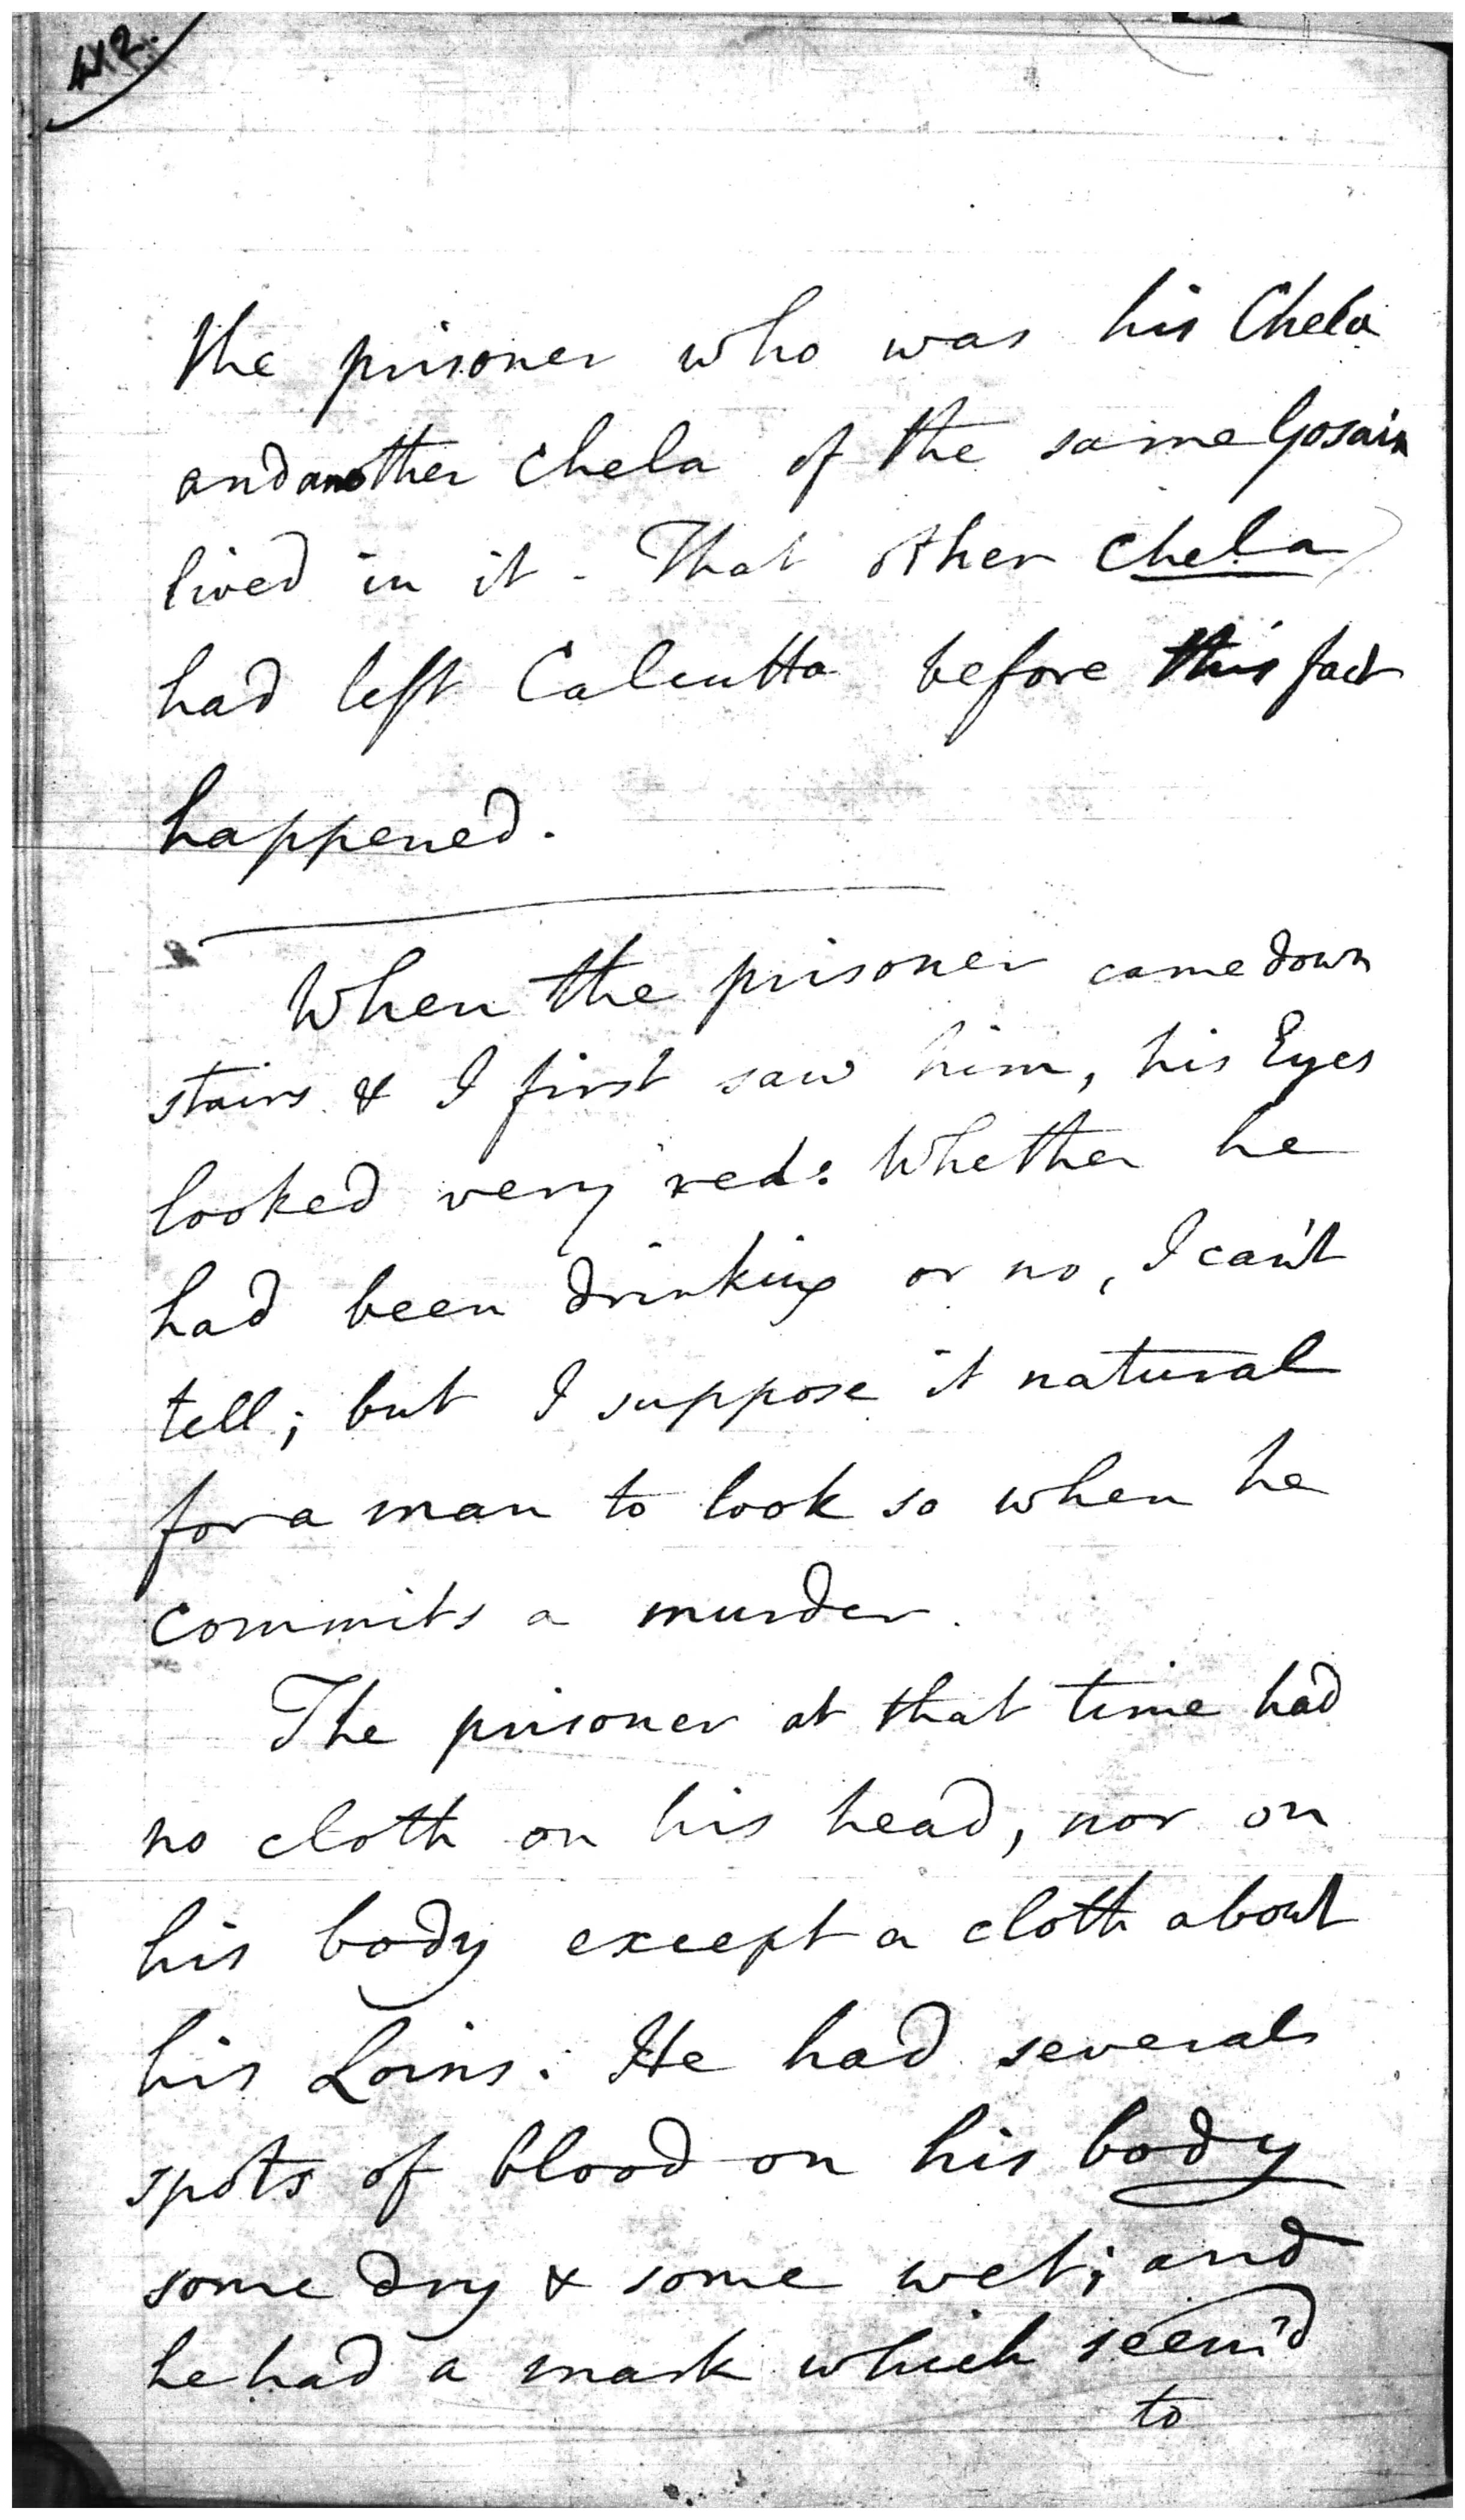 the prisoner who was his Chela
and another Chela of the same Gosain
lived in it - That other Chela
had left Calcutta before this fact
happened.
When the prisoner came down
stairs & I first saw him, his Eyes
looked very red: Whether he
had been drinking or no, I can't
tell; but I suppose it natural
for a man to look so when he
commits a murder.
The prisoner at that time had
no cloth on his head, nor on
his body except a cloth about
his Loins. He had several
spots of blood on his body
some dry & some wet; and
he had a mark which seem'd
to